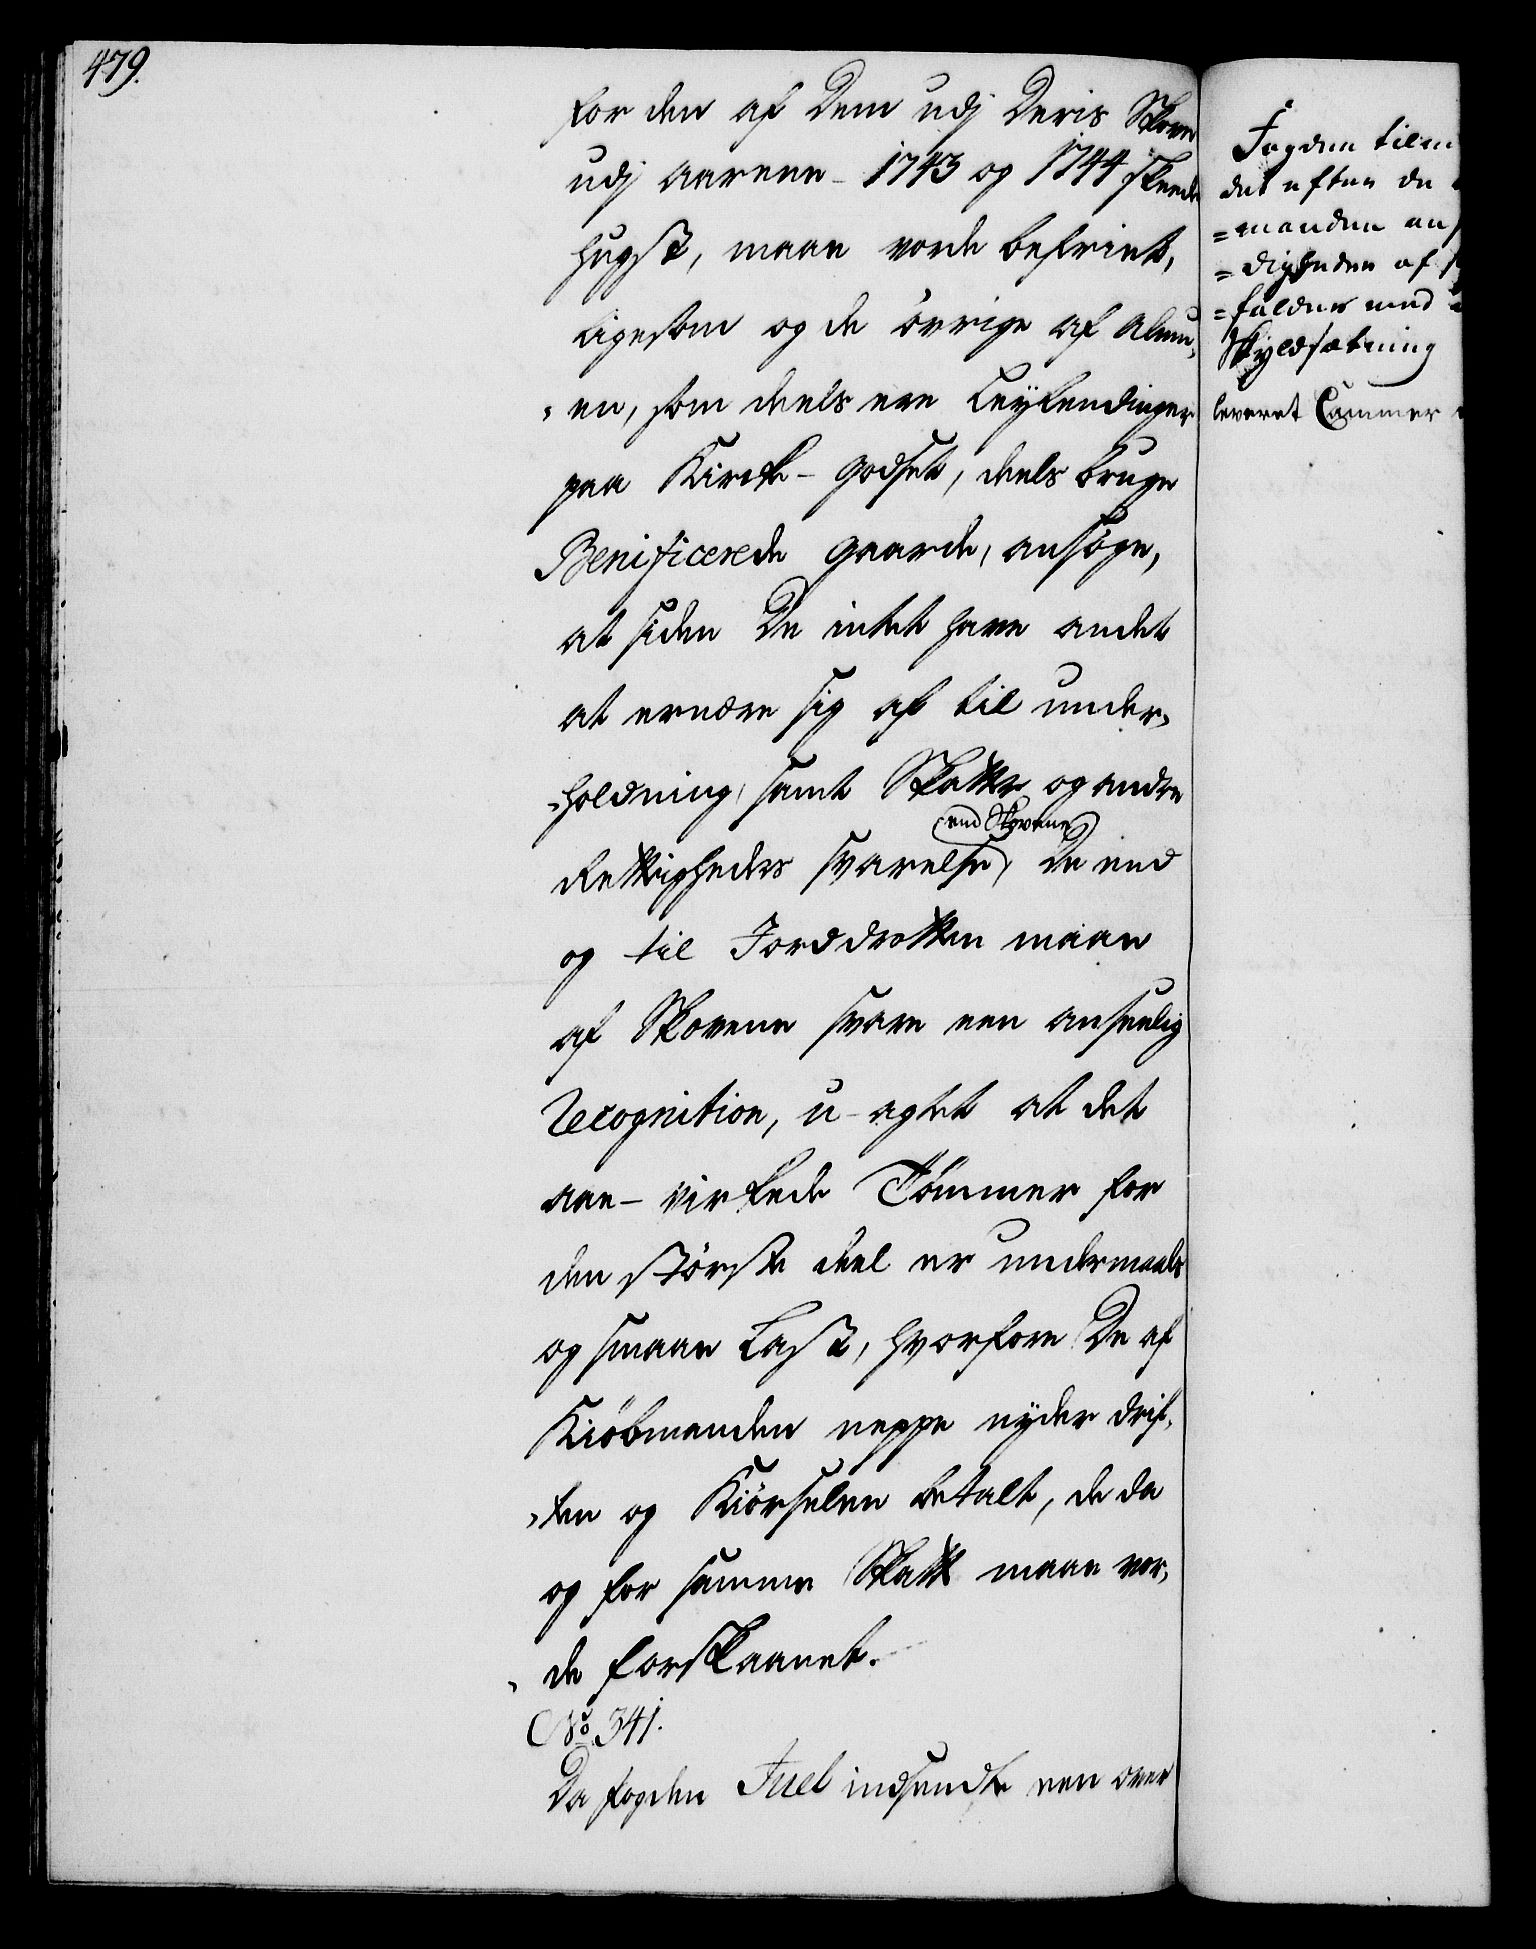 479.
for den af Dem udj Deris Skove
udj aarene 1743 og 1744 skeede
hugst, maae vorde befriet,
ligesom og de övrige af Almu-
-en, som deels ere Leylendinger
paa Kirke-godset, deels bruge
Benificerede gaarde, ansöge,
at siden De intet have andet
at ernære sig af til under-
-holdning, samt Skatters og andre
Rettigheders svarelse, end Skovene De end
og til Jorddrotten maae
af Skovene svare een anseelig
Recognition, u-agtet at det
aae-virkede Tömmer for
den störste deel er undermaals
og smaae Last, hvorfore De af
Kiöbmanden neppe nyder drif-
-ten og Kiörselen betalt, de da
og for samme Skatt maae vor-
de forskaanet.
No. 341.
Da fogden Juel indsendte een over
Fogden tilm
det efter de
=manden an
=digheden af
=falder med
Skyldsætning
leveret Cammer